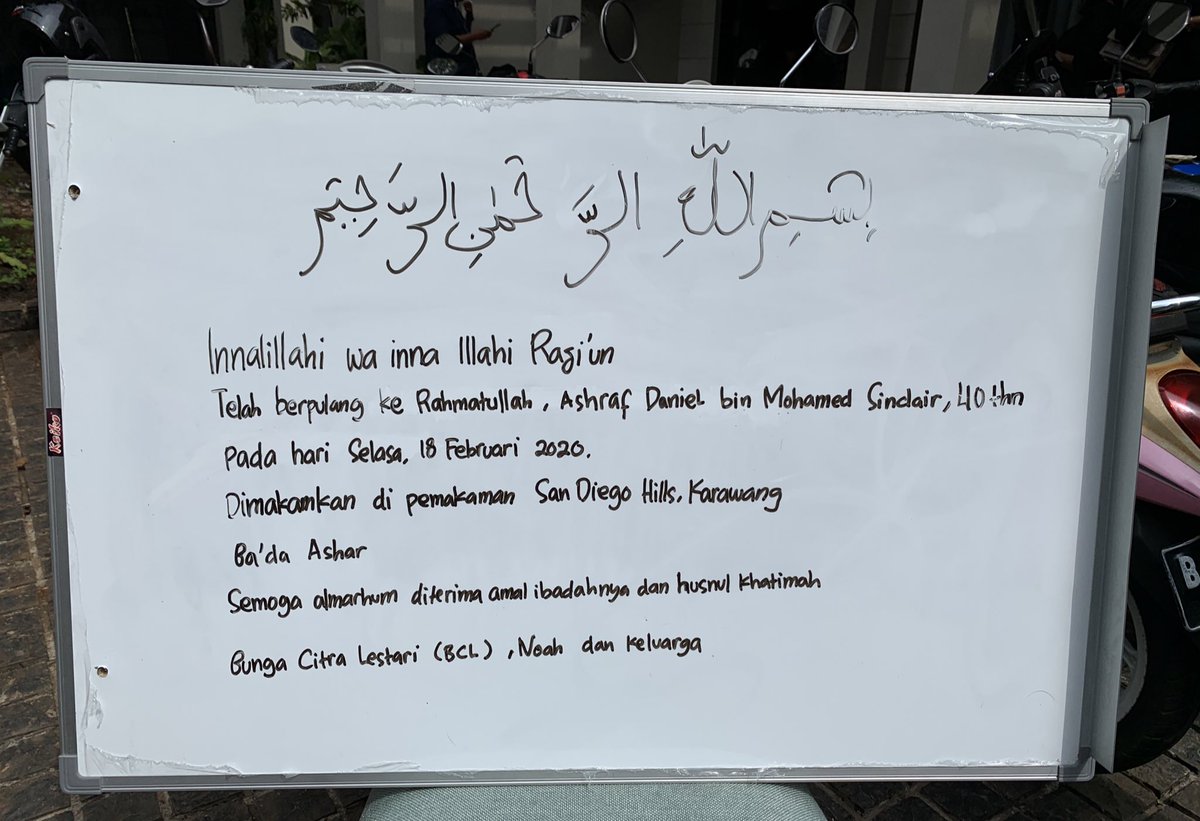 بِسْمِ اللّٰهِ الرَّحْمٰنِ الرَّحِيْمِ
Innalillahi wa inna Illahi Ragi'un
Telah berpulang ke Rahmatullah, Ashraf Daniel bin Mohamed Sinclair, 40 thn
Pada hari Selasa, 18 Februari 2020.
Dimakamkan di pemakaman San Diego Hills, Karawang
Ba'da Ashar
Semoga almarhum diterima amal ibadahnya dan husnul khatimah
Bunga Citra Lestari (BCL), Noah dan Keluarga
B